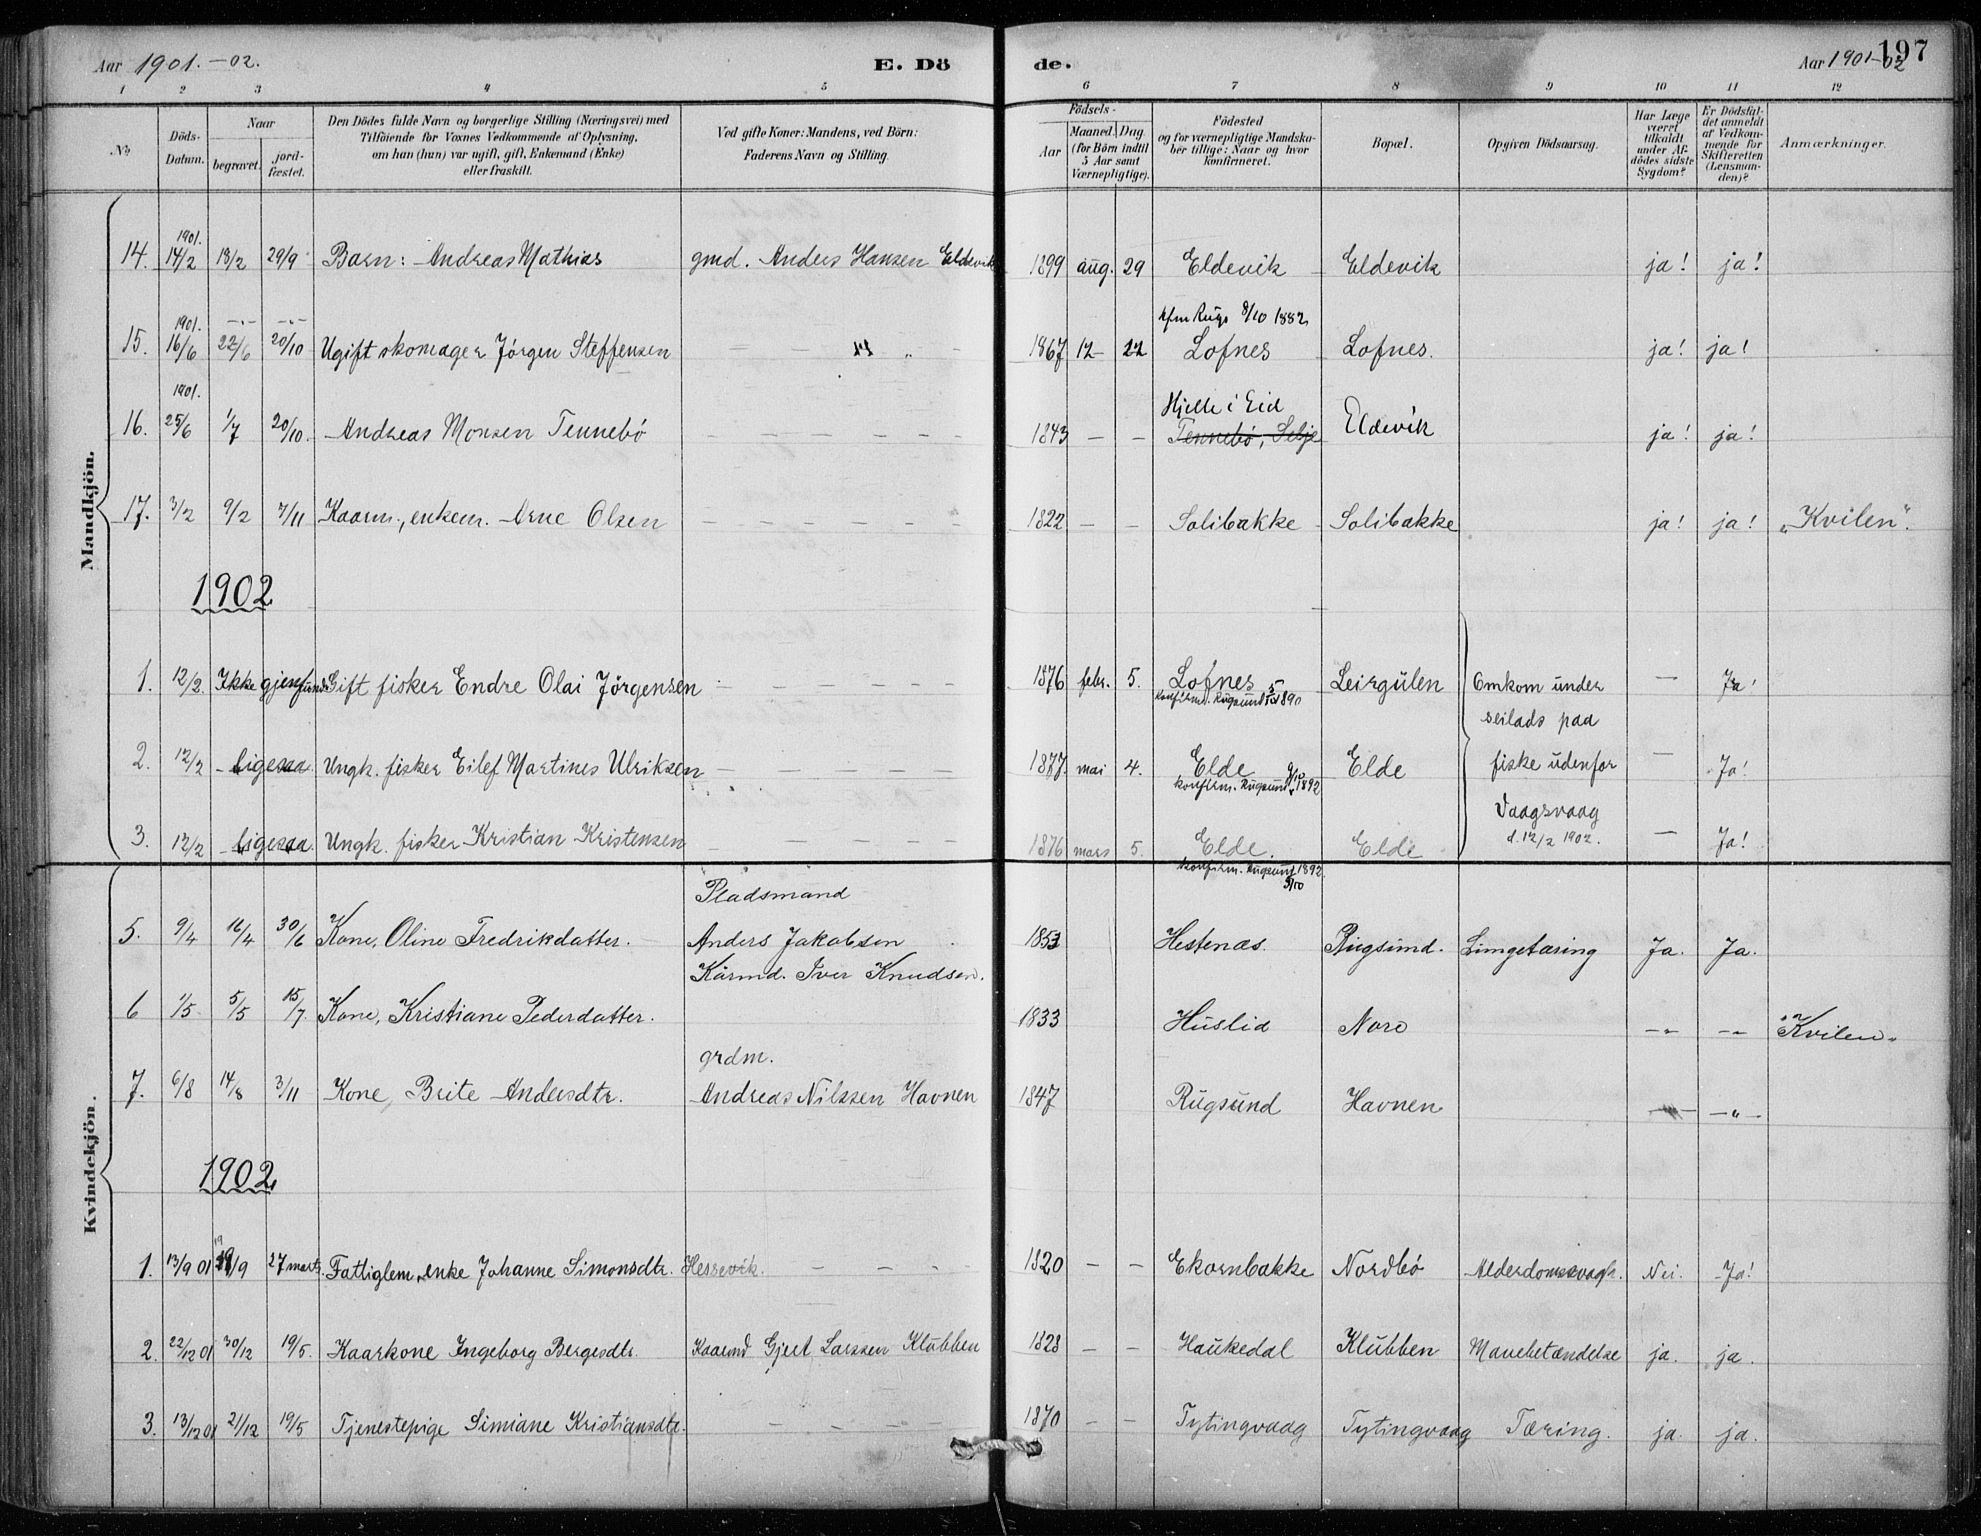 Aar 1901.-02.
E. Dö
de.
Aar 1901-02
197
1 2 3 4 5 6 7 8 9 10 11 12
No
Döds-Datum.
Naar
begravet.
jord-fæstet.
Den Dödes fulde Navn og borgerlige Stilling (Næringsvei) med
Tilföiende for Voxnes Vedkommende af Oplysning,
om han (hun) var ugift, gift, Enkemand (Enke)
eller fraskilt.
Ved gifte Koner: Mandens, ved Börn:
Faderens Navn og Stilling.
Födsels-
Aar
Maaned. Dag.
(for Börn indtil
5 Aar samt
Værnepligtige).
Födested
og for værnepligtige Mandska-
ber tillige: Naar og hvor
konfirmeret.
Bopæl.
Opgiven Dödsaarsag.
Har Læge
været
tilkaldt
under Af-
dödes sidste
Sygdom?
Er Dödsfal-
det anmeldt
af Vedkom-
mende for
Skifteretten
(Lensman-
den)?
Anmærkninger.
Mandkjön.
14. 1901. 14/2 18/2 29/9 Barn: Andreas Mathias gmd. Anders Hansen Eldevik 1899 aug. 29 Eldevik Eldevik ja! ja!
Kfm Rugs 8/10 1882
15. 1901. 16/6 22/6 20/10 Ugift skomager Jörgen Steffensen 1867 12 22 Lofnes Lofnes. ja! ja!
Hjelle i Eid
16. 1901. 25/6 1/7 20/10. Andreas Monsen Tennebö 1843 - - Tennebö, Selje Eldevik ja! ja!
17. 3/2 9/2 7/11 Kaarm., enkem. Arne Olsen 1822 - - Solibakke Solibakke ja! ja! "Kvilen".
1902
1. 12/2. Ikke gjenfundet Gift fisker Endre Olai Jörgensen 1876 febr. 5. Lofnes Leirgulen Omkom under - Ja!
konfirm. Rugsund 5/10 1890
seilads paa
2. 12/2 ligesaa. Ungk. fisker Eilef Martines Ulriksen 1877. mai 4. Elde Elde fiske udenfor - Ja!
konfirm. Rugsund 9/10 1892
Vaagsvaag
3. 12/2 ligesaa. Ungk. fisker Kristian Kristensen 1876 mars 5. Elde. Elde d. 12/2 1902. - Ja!
konfirm. Rugsund 1892
9/10
Kvindekjön.
Pladsmand
5. 9/4 16/4 30/6 Kone, Oline Fredrikdatter. Anders Jakobsen 1853 Hestenæs. Rugsund. Lungetæring Ja. Ja.
Kårmd. Iver Knudsen.
6 1/5 5/5 15/7. Kone, Kristiane Pederdatter. 1833 Huslid Nore -"- -"- "Kvilen"
grdm.
7. 6/8 14/8 3/11 Kone, Brite Andersdtr. Andreas Nilssen Havnen 1847 Rugsund Havnen -"- -"-
1902
1. 13/9 01 19/9 27 marts. Fattiglem, enke Johanne Simonsdtr. Hessevik. 1820 - - Ekornbakke Nordbö Alderdomssvagh. Nei. Ja!
2. 22/12 01 30/12 19/5. Kaarkone Ingeborg Bergesdtr. Kaarmd Gjert Larssen Klubben 1828 - - Haukedal Klubben Mavebetændelse ja. ja.
3. 13/12 01 21/12 19/5 Tjenestepige Simiane Kristiansdtr. 1870 - - Tytingvaag Tytingvaag Tæring. ja. ja.